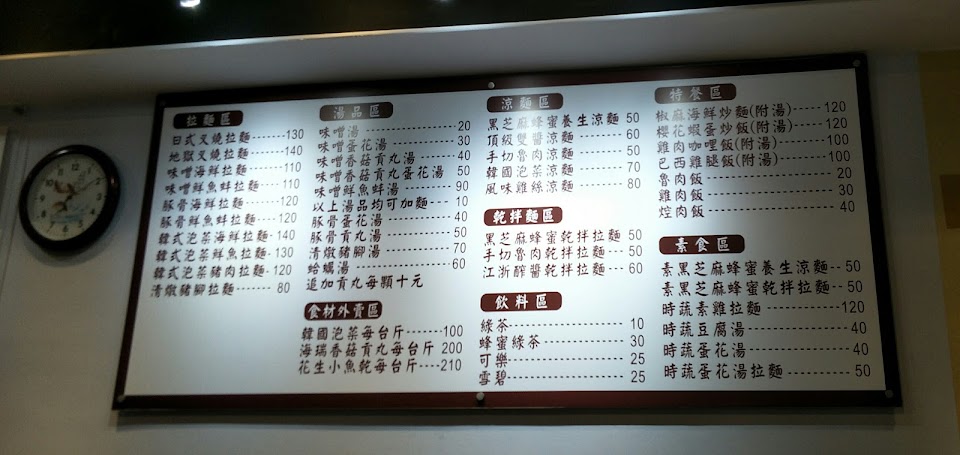 拉麵區
日式叉燒拉麵------130
地獄叉燒拉麵------140
味噌海鮮拉麵----110
味噌鮮魚蚌拉麵---110
豚骨海鮮拉麵-----120
豚骨鮮魚蚌拉麵--120
韓式泡菜海鮮拉麵-140
韓式泡菜鮮魚拉麵-130
韓式泡菜豬肉拉麵-120
清燉豬腳拉麵----- 80
湯品區
味噌湯----------------20
味噌蛋花湯----------30
味噌香菇貢丸湯----40
味噌香菇貢丸蛋花湯 50
味噌鮮魚蚌湯-------90
以上湯品均可加麵--- 10
豚骨蛋花湯----------40
豚骨貢丸湯----------50
清燉豬腳湯----------70
蛤蠣湯----------------60
追加貢丸每顆十元
食材外賣區
韓國泡菜每台斤-------100
海瑞香菇貢丸每台斤 200
花生小魚乾每台斤----210
涼麵區
黑芝麻蜂蜜養生涼麵 50
頂級雙醬涼麵------- 60
手切魯肉涼麵------- 50
韓國泡菜涼麵------- 70
風味雞絲涼麵------- 80
乾拌麵區
黑芝麻蜂蜜乾拌拉麵 50
手切魯肉乾拌拉麵--- 50
江浙醡醬乾拌拉麵--- 60
飲料區
綠茶--------------------10
蜂蜜綠茶--------------30
可樂--------------------25
雪碧--------------------25
特餐區
椒麻海鮮炒麵(附湯)-----120
櫻花蝦蛋炒飯(附湯)-----100
雞肉咖哩飯(附湯)--------100
巴西雞腿飯(附湯)--------100
魯肉飯--------------------20
雞肉飯--------------------30
焢肉飯--------------------40
素食區
素黑芝麻蜂蜜養生涼麵-- 50
素黑芝麻蜂蜜乾拌拉麵-- 50
時蔬素雞拉麵----------120
時蔬豆腐湯--------------40
時蔬蛋花湯--------------40
時蔬蛋花湯拉麵-------- 50